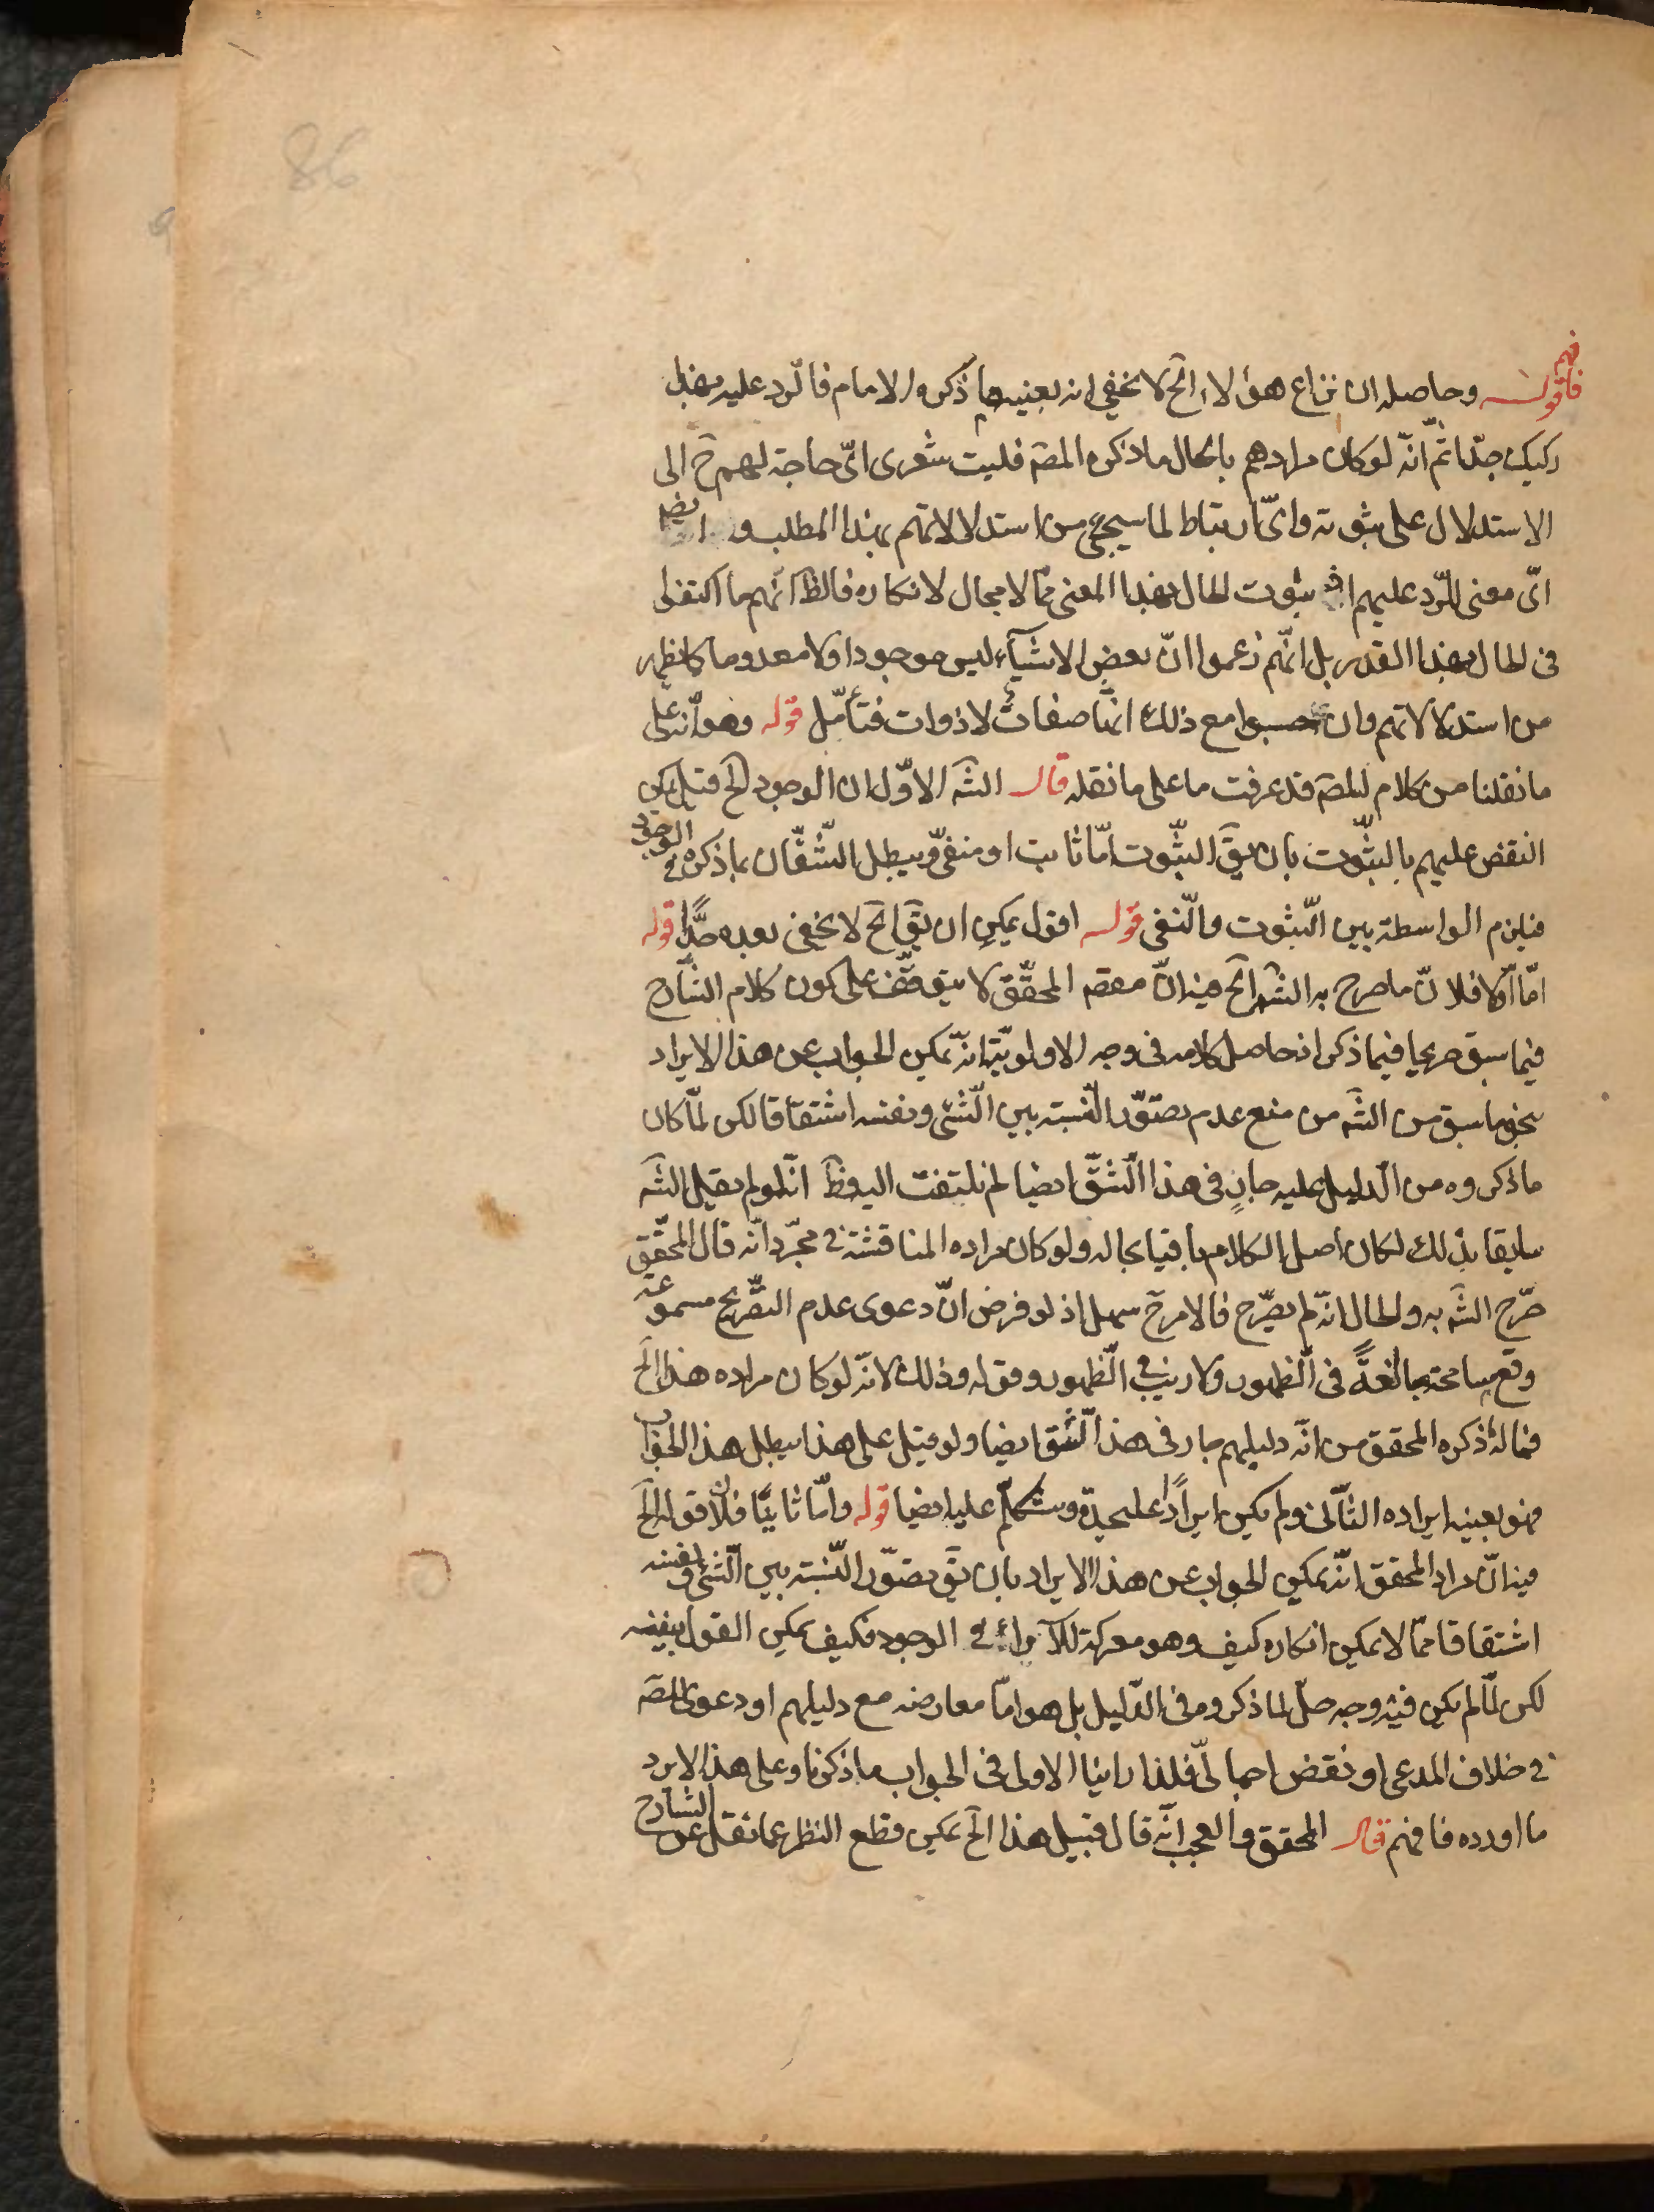 86
فافهم قوله وحاصله ان نزاع هؤلاء الخ لا يخفى انه بعينه ما ذكره الامام فالرد عليه بهذا
ركيك جدّا ثم انّه لو كان مرادهم بالحال ما ذكره المصَ فليت شعرى اىّ حاجة لهم ح الى
الاستدلال على ثبوته واىّ ارتباط لما سيجئ من استدلالاتهم بهذا المطلب و ايضا
اىّ معنى للرّد عليهم اذ ثبوت الحال بهذا المعنى ممّا لا مجال لانكاره فالظ انّهم ما اكتفوا
فى الحال بهذا القدر بل انّهم زعموا انّ بعض الاشياء ليس موجودا ولا معدوما كما يظهر
من استدلالاتهم وان حسبوا مع ذلك انّها صفات لا ذوات فتأمّل قوله وهو انّه على
ما نقلنا من كلام المصَ قد عرفت ما على ما نقله قال الشَه الاوّل ان الوجود الخ قيل يمكن
النقض عليهم بالثّبوت بان يقَ الثّبوت امّا ثابت او منفىّ ويبطل الشّقّان بما ذكره فى الوجود
فيلزم الواسطة بين الثّبوت والنّفى قوله اقول يمكن ان يقَ الخ لا يخفى بعده جدًّا قوله
امّا اوّلا فلانّ ما صرح به الشَه الخ فيه انّ مقصَ المحقّق لا يتوقّف على كون كلام الشّارح
فيما سبق صريحا فيما ذكر اذ حاصل كلامه فى وجه الاولويّة انّه يمكن الجواب عن هذا الايراد
بنحو ما سبق من الشَه من منع عدم تصوّر النّسبة بين الشّئ ونفسه اشتقاقا لكن لمّا كان
ما ذكروه من الدليل عليه جارٍ فى هذا الشّقّ ايضا لم نلتفت اليه وظَ انّه لو لم يقل الشَه
سابقا بذلك لكان اصل الكلام باقيا بحاله ولو كان مراده المناقشة فى مجرّد انّه قال المحقّق
صرّح الشَه به والحال انّه لم يصرّح فالامر ح سهل اذ لو فرض انّ دعوى عدم التصريح مسموعة
وقع مسامحته مبالغةً فى الظهور ولا ريب فى الظّهور وقوله وذلك لانّه لو كان مراده هذا الخ
فما له ذكره المحقق من انّه دليلهم جار فى هذا الشّق ايضا ولو قيل على هذا يبطل هذا الجواب
فهو بعينه ايراده الثّانى ولم يكن ايراًدا عليحدة وسنتكلّم عليه ايضا قوله وامّا ثانيًا فلانّ قوله الخ
فيه انّ مراد المحقق انّه يمكن الجواب عن هذا الايراد بان يقَ تصوّر النّسبة بين الشّئ ونفسه
اشتقاقا ممّا لا يمكن انكاره كيف وهو معركة للآراء فى الوجود فكيف يمكن القول بنفيه
لكن لمّا لم يكن فيه وجه حلّ لما ذكروه فى الدّليل بل هو امّا معارضه مع دليلهم او دعوى المصَ
فى خلاف المدعى او نقض اجمالىّ فلذا راينا الاولى فى الجواب ما ذكرنا وعلى هذا لا يرد
ما اورده فافهم قال المحقق والعجب انّه قال قبيل هذا الخ يمكن قطع النظر عمّا نقل عن الشّارح